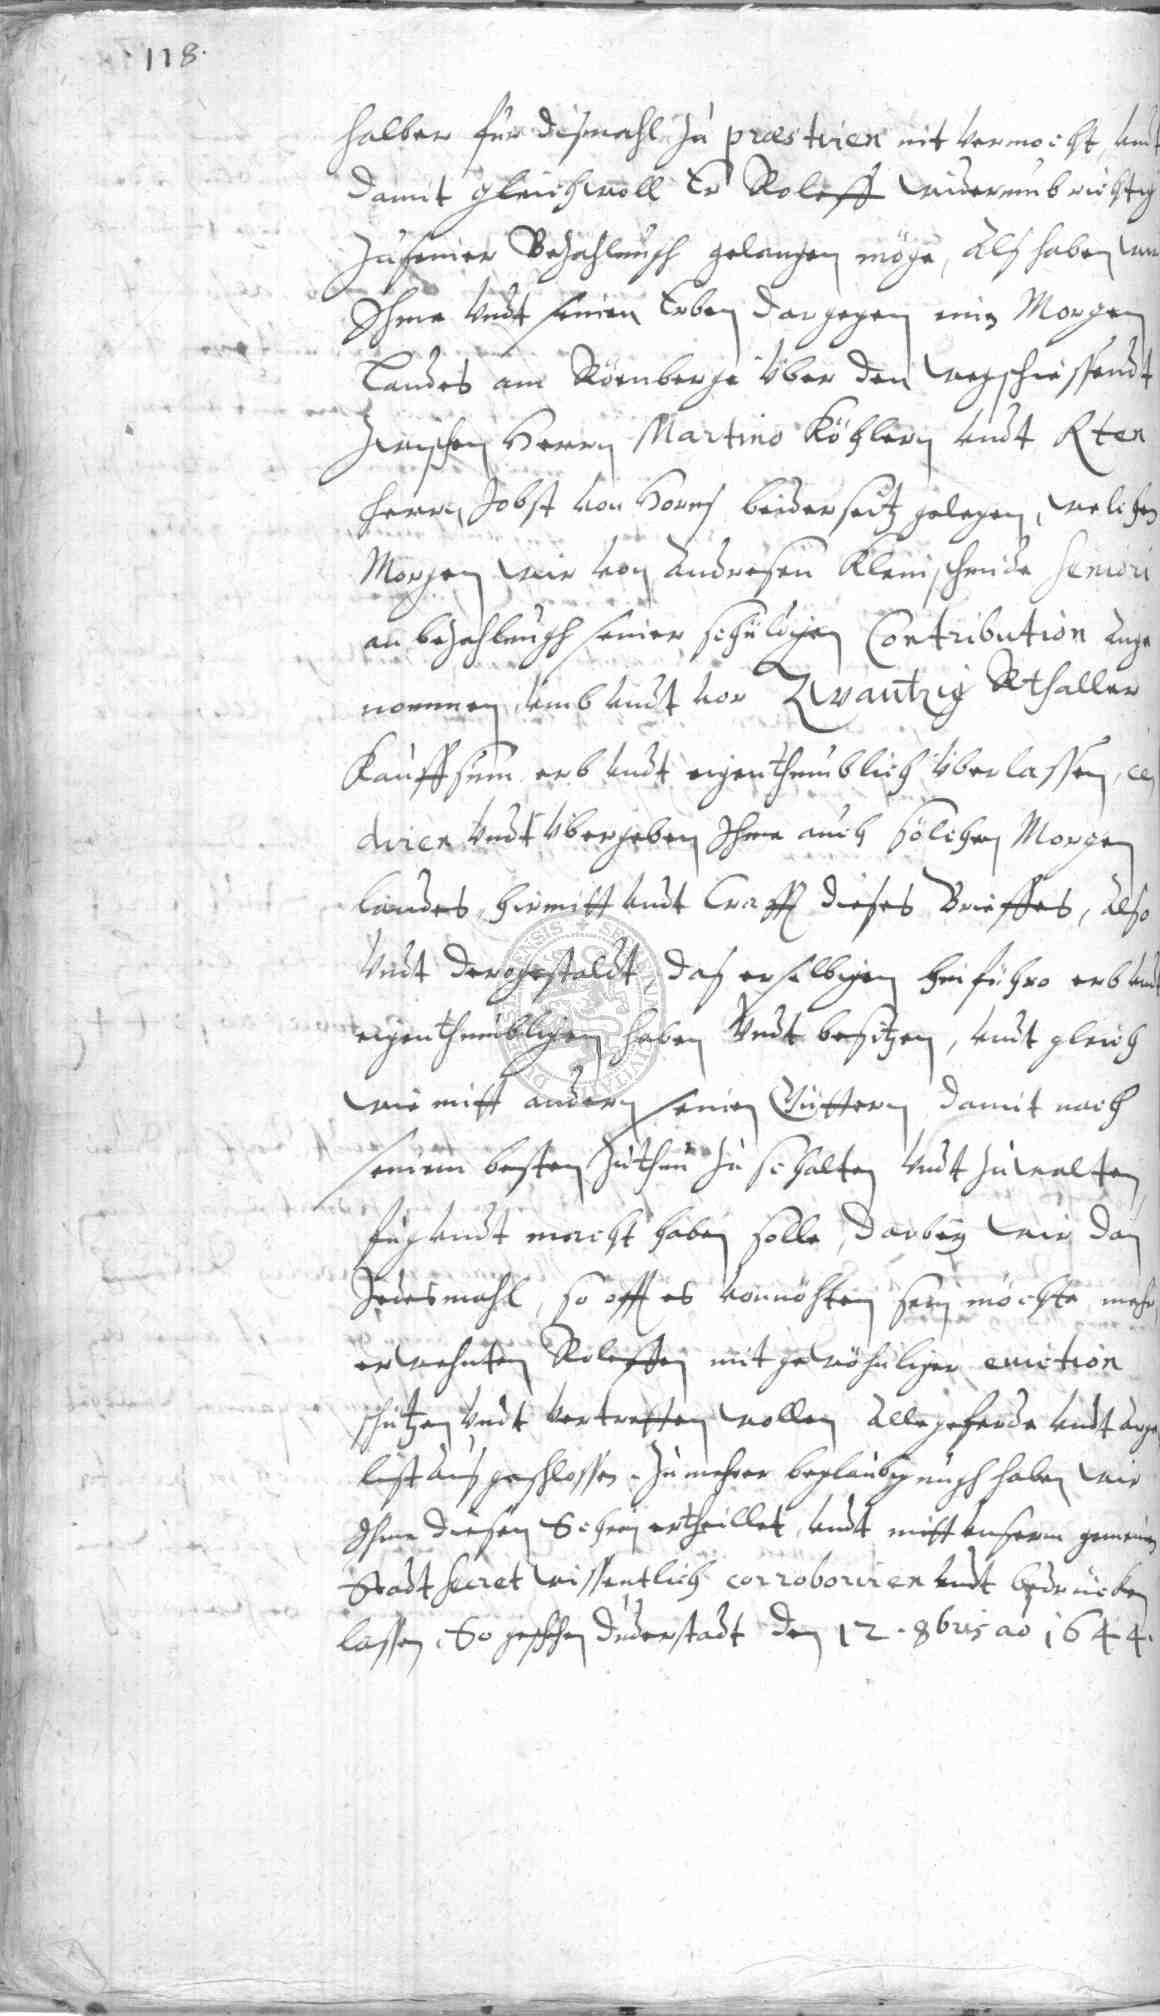 118.
halber für dißmahl zu præstiren nit vermocht, undt
damit gleichwoll Er Roleff widerumb richtig
zu seiner Bezahlungh gelangen möge, Alß haben wir
Ihme undt seinen Erben dargegen ein Morgen
Landes am Röenberge über den weg schiessendt
zwischen Herrn Martino Köhlern undt
herrn Jobst von Horns beiderseitz gelegen, welichen
Morgen wir von Andresen Kleinschmide Seniori
an bezahlungh seiner schüldigen Contribution ange
nommen, umb undt vor Zwantzig Rthaller
Kauffsum erb undt eigenthumblich überlassen, ce
diren undt übergeben Ihme auch sölchen Morgen
landes, hirmitt undt Crafft dieses Brieffes, Also
undt derogestaldt daß er selbigen hinführo erb undt
eigenthumblichen haben undt besitzen, undt gleich
wie mitt andern seinen Güttern damit nach
seinem besten zuthun zu schalten undt zu walten,
fug undt macht haben solle, darbey wir dan
Jedesmahl, so offt es vonnöhten sein möchte mehr
erwehnten Roleffen mit gewöhnlicher eviction
schützen undt vertretten wollen Alle geferde undt arge
list ausgeschlossen. Zu mehrer beglaubigungh haben wir
Ihme diesen Schein ertheillet, undt mitt unserm gemeinen
Stadt Secret wissentlich corroboriren undt bedrücken
lassen, So geschehen Duderstadt den 12. 8bris ao 1644.